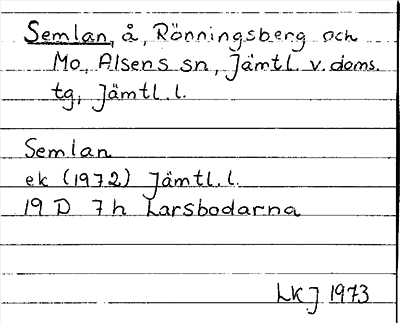 Semlan, å, Rönningsberg och
Mo, Alsens sn, Jämtl. v. doms.
tg, Jämtl. l.
Semlan
ek (1972) Jämtl. l.
19 D 7h Larsbodarna
LKJ 1973